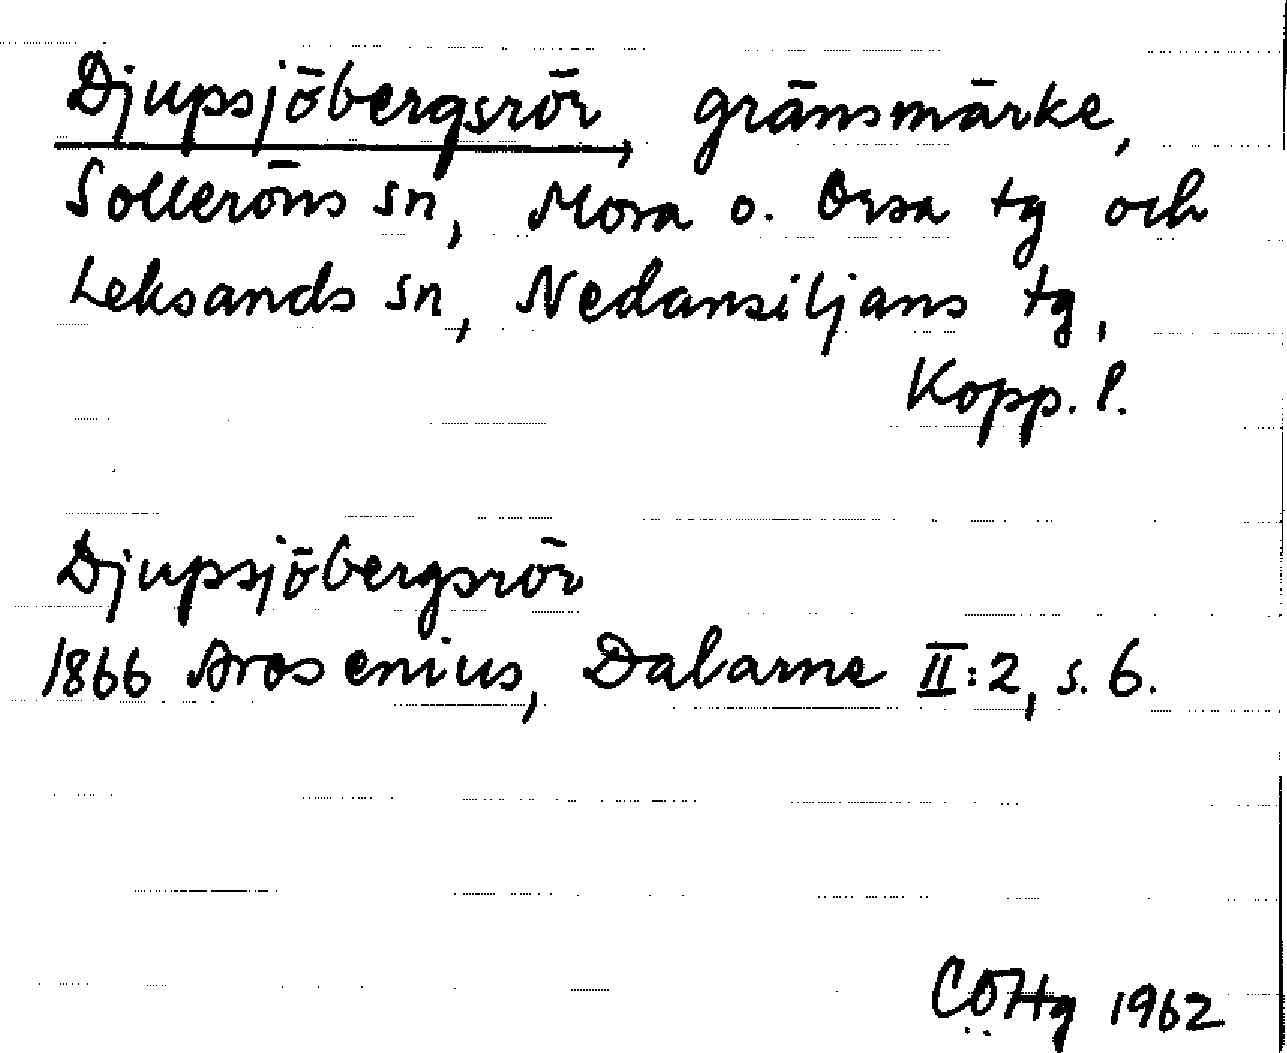 Djupsjöbergsrör gränsmärke,
Solleröns sn, Mora o. Orsa tg och
Leksands sn, Nedansiljans tg,
Kopp. l.
Djupsjöbergsrör
1866 Arosenius, Dalarne II:2, s. 6.
CÖHg 1962